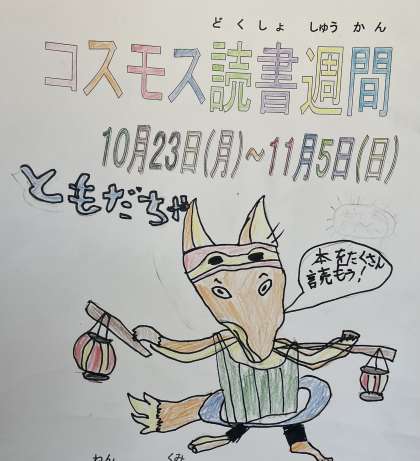 どくしょ しゅうかん
コスモス読書週間
10月23日(月)~11月5日(日)
ともだちや
本をたくさん
読もう!
ねん くみ